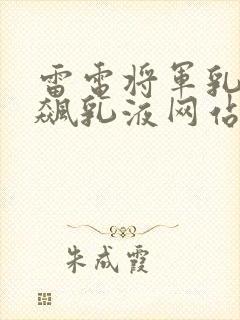 雷电将军乳
飙乳液网站
朱成霞